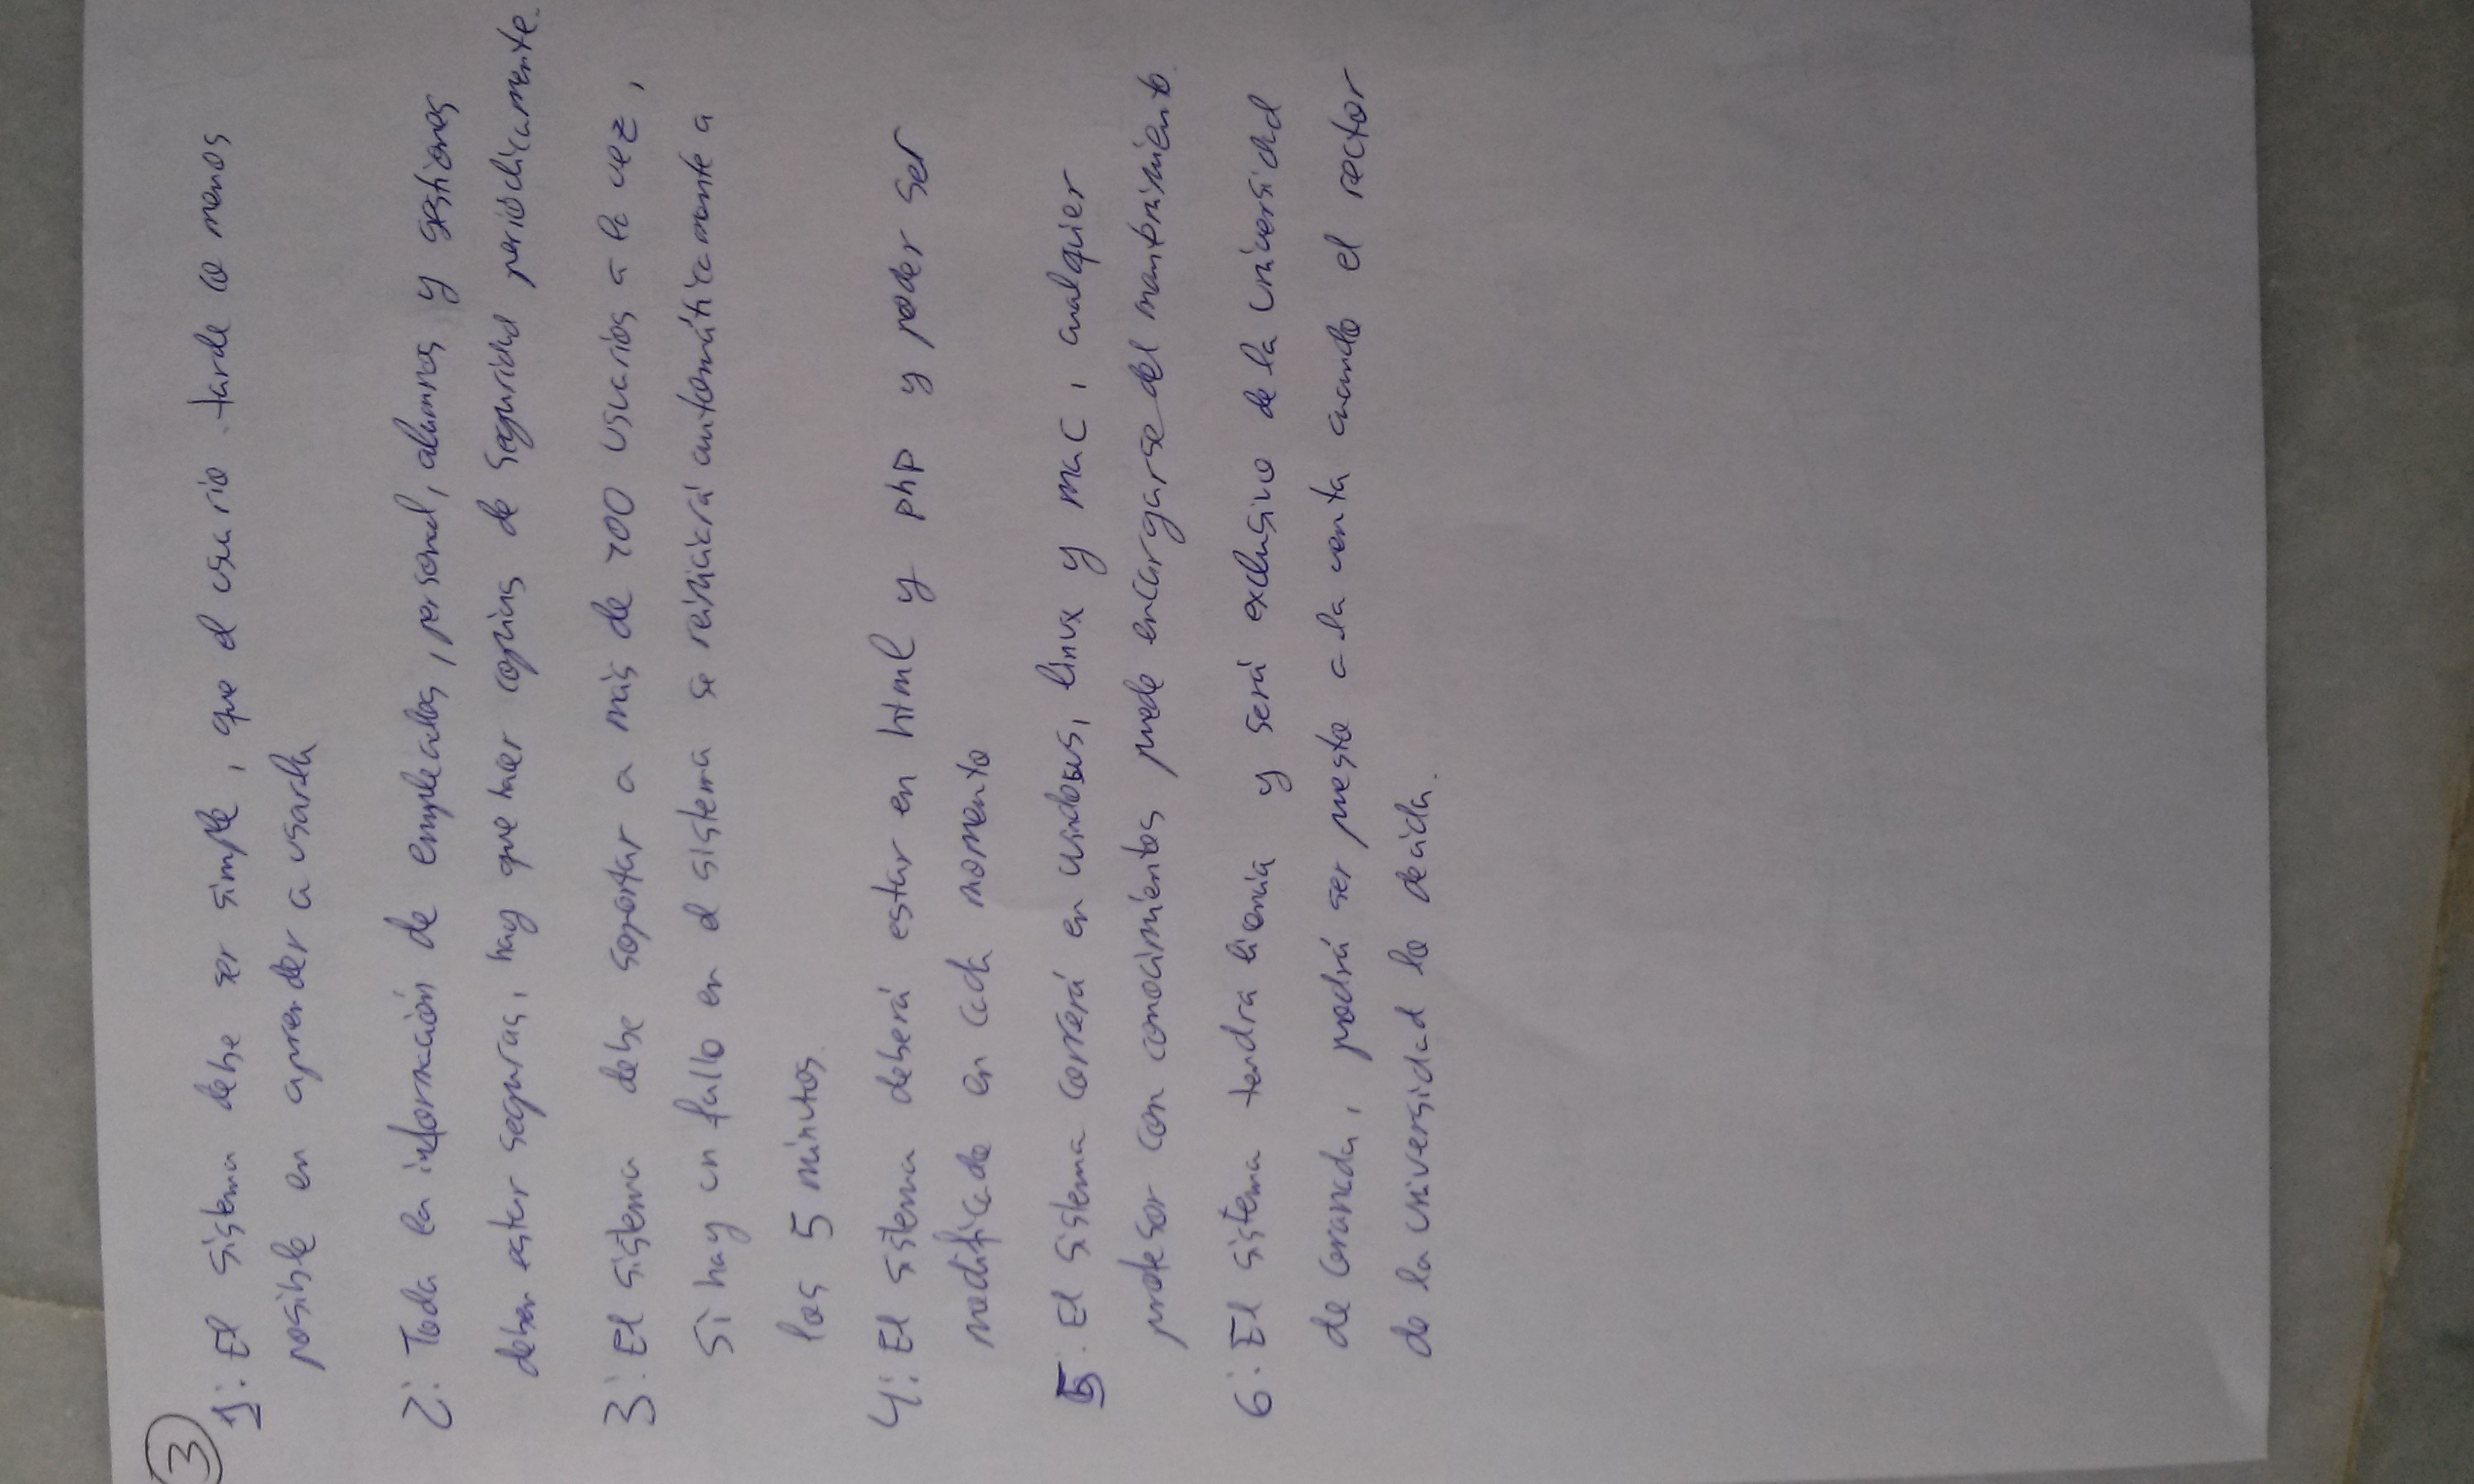 3
1: El sistema debe ser simple, que el usuario tarde lo menos
posible en aprender a usarla
2: Toda la información de empleados, personal, alumnos y gestiones
deben estar seguras, hay que hacer copias de seguridad periódicamente.
3: El sistema debe soportar a más de 700 usuarios a la vez,
si hay un fallo en el sistema se reiniciará automáticamente a
los 5 minutos.
4: El sistema deberá estar en html y php y poder ser
modificado en cada momento
5. El sistema correrá en windows, linux y mac, cualquier
profesor con conocimientos puede encargarse del mantenimiento.
6: El sistema tendra licencia y será exclusivo de la universidad
de Granada, podrá ser puesto a la venta cuando el rector
de la universidad lo decida.